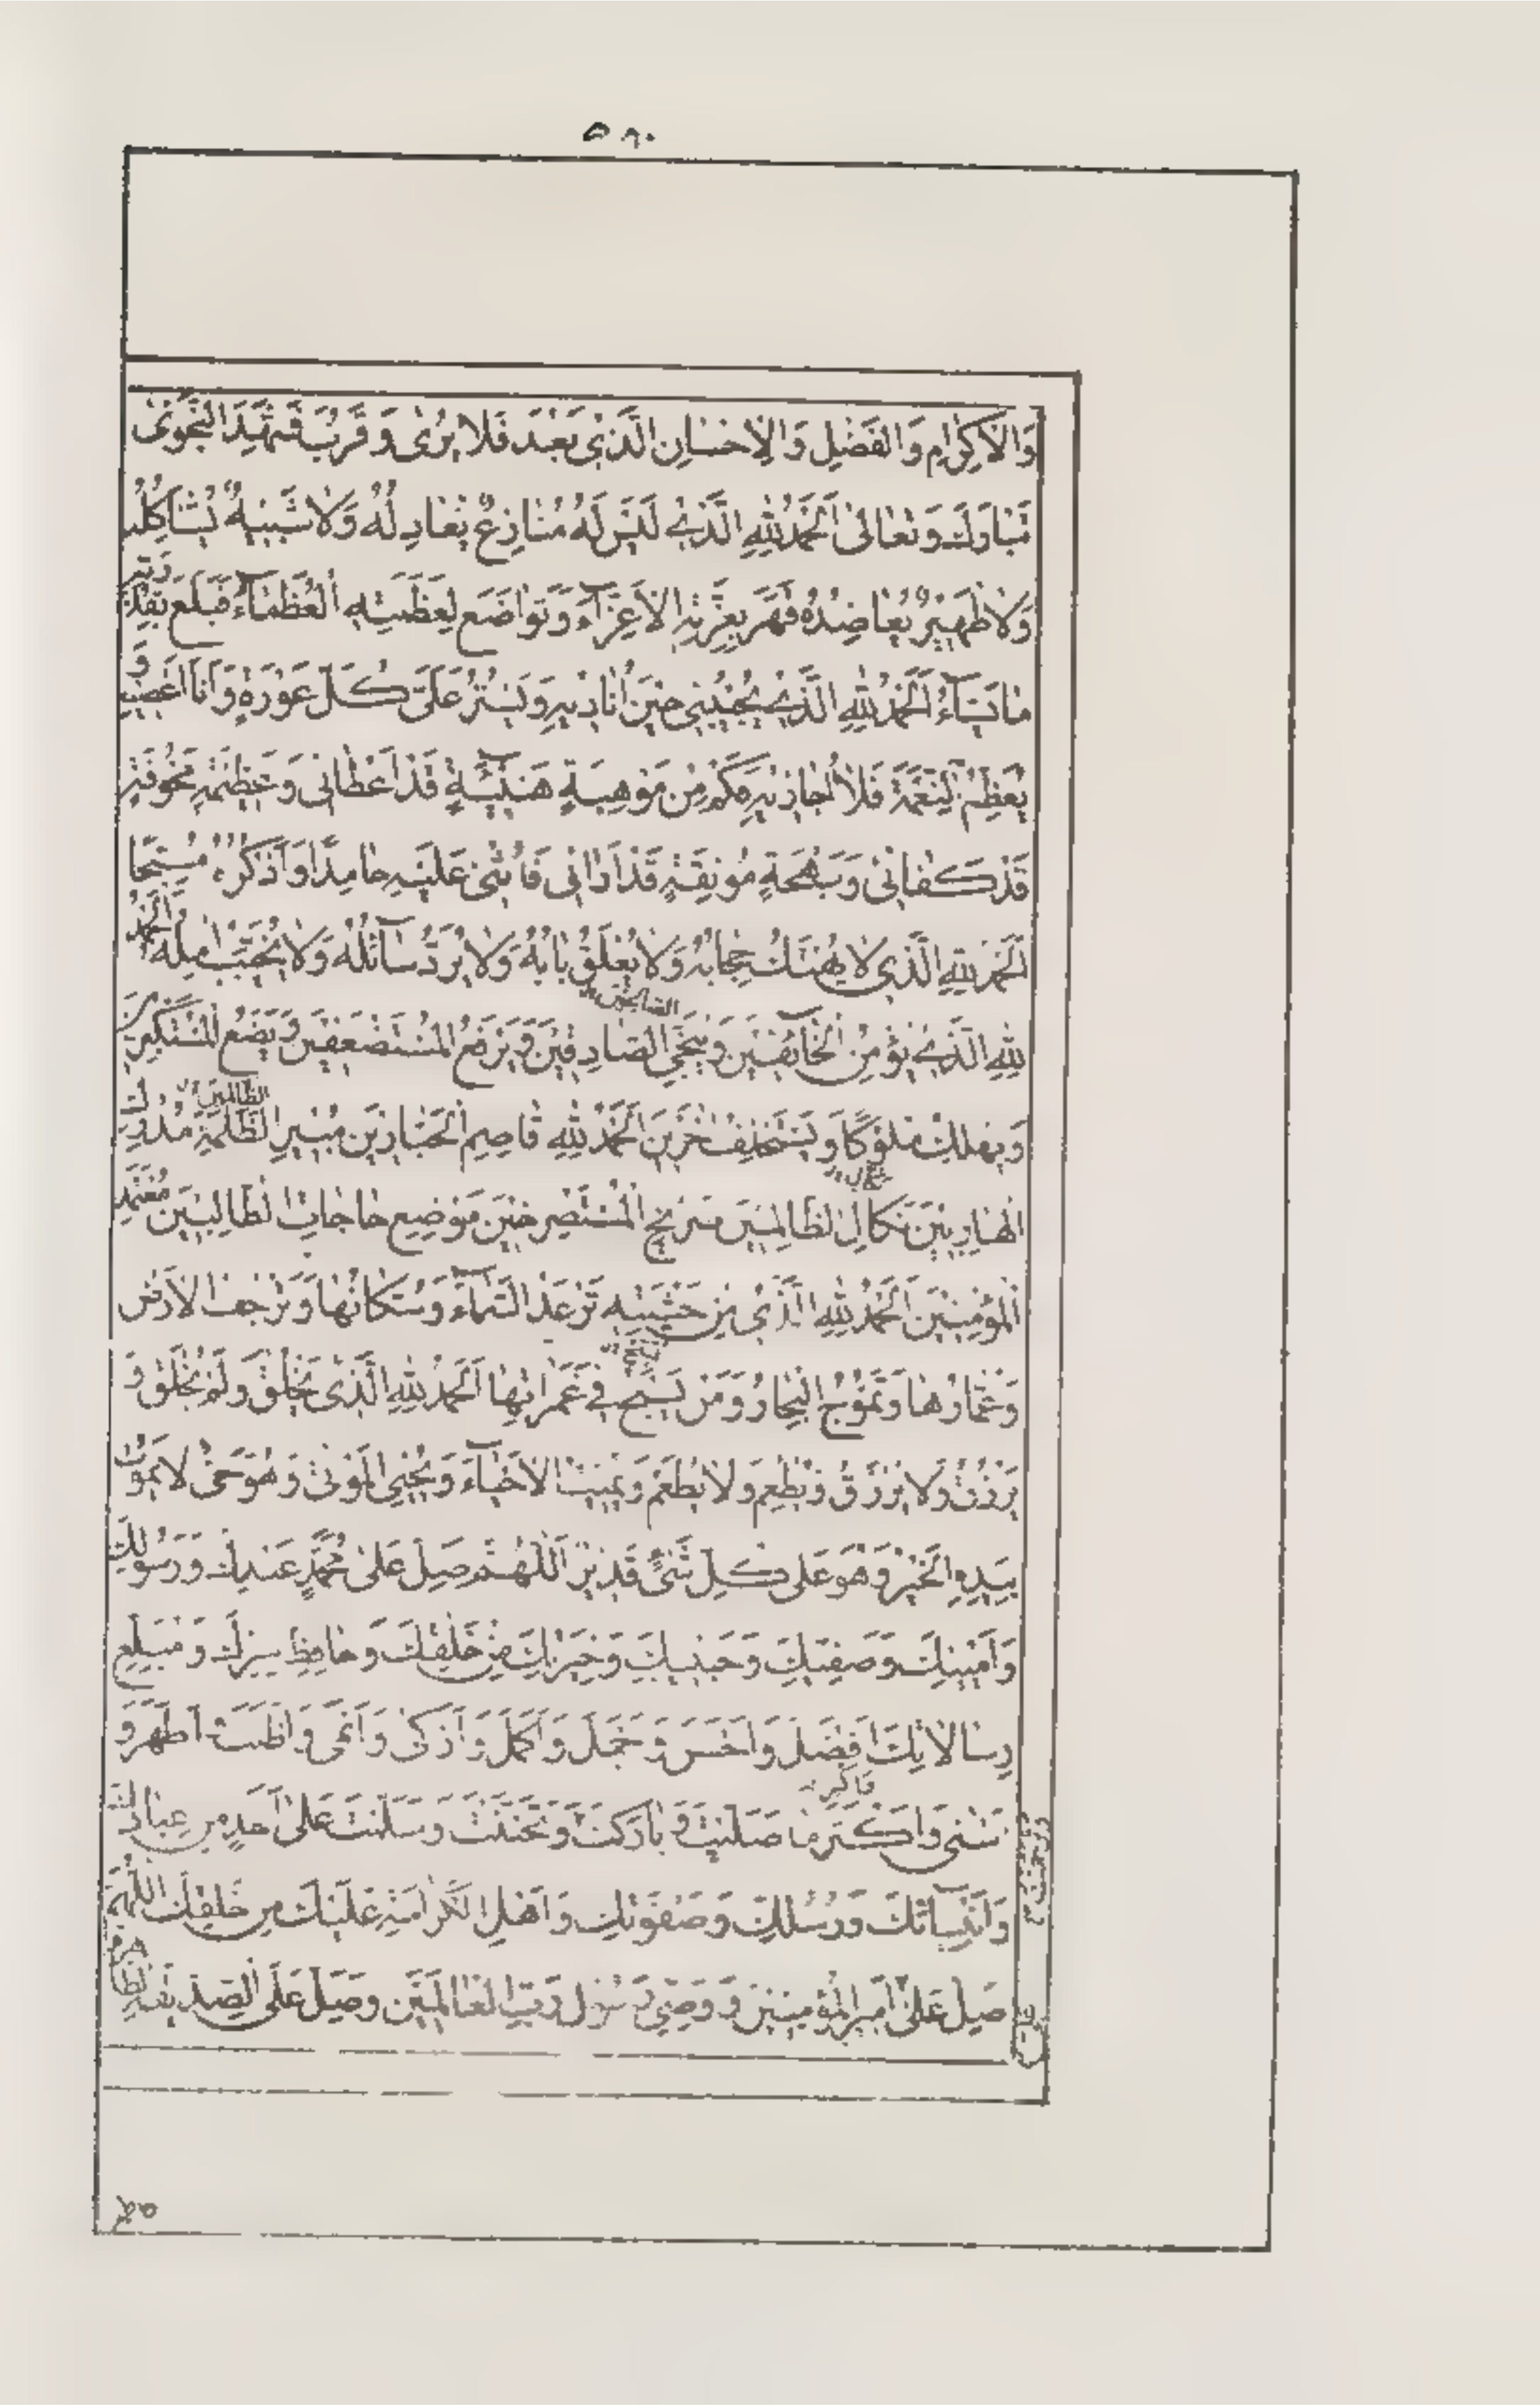 ٥٩٠
وَالْاِكْرٰامِ وَالْفَضْلِ وَالْاِحْسٰانِ الَّذِي بَعُدَ فَلا يُرىٰ وَ قَرُبَ فَشَهِدَ النَّجْوىٰ
تَبٰارَكَ وَتَعٰالىٰ اَلْحَمْدُ لِلّٰهِ الَّذِي لَيْسَ لَهُ مُنٰازِعٌ يُعٰادِلُهُ وَلاٰ شَبِيهٌ يُشٰاكِلُهُ
وَلاٰ ظَهِيرٌ يُعٰاضِدُهُ قَهَرَ بِعِزَّتِهِ الْاَعِزّٰآءَ وَتَوٰاضَعَ لِعَظَمَتِهِ الْعُظَمٰآءُ فَبَلَغَ بِقُدْرَتِهِ
مٰا يَشٰآءُ اَلْحَمْدُ لِلّٰهِ الَّذِي يُجِيبُنِي حِينَ اُنٰادِيهِ وَيَسْتُرُ عَلَيَّ كُلَّ عَوْرَةٍ وَاَنَا اَعْصِيهِ وَ
يُعَظِّمُ النِّعْمَةَ فَلاٰ اُجٰازِيهِ فَكَمْ مِنْ مَوْهِبَةٍ هَنِيئَةٍ قَدْ اَعْطٰانِي وَعَظِيمَةٍ مَخُوفَةٍ
قَدْ كَفٰانِي وَبَهْجَةٍ مُونِقَةٍ قَدْ اَرٰانِي فَاُثْنِي عَلَيْهِ حٰامِدًا وَاَذْكُرُهُ مُسَبِّحًا
اَلْحَمْدُ لِلّٰهِ الَّذِي لاٰ يُهْتَكُ حِجٰابُهُ وَلاٰ يُغْلَقُ بٰابُهُ وَلاٰ يُرَدُّ سٰآئِلُهُ وَلاٰ يُخَيَّبُ اٰمِلُهُ اَلْحَمْدُ
لِلّٰهِ الَّذِي يُؤْمِنُ الْخٰآئِفِينَ وَيُنَجِّي الصّٰادِقِينَ وَيَرْفَعُ الْمُسْتَضْعَفِينَ وَيَضَعُ الْمُسْتَكْبِرِينَ
الصّٰالِحِينَ
وَيُهْلِكُ مُلُوكًا وَيَسْتَخْلِفُ اٰخَرِينَ اَلْحَمْدُ لِلّٰهِ قٰاصِمِ الْجَبّٰارِينَ مُبِيرِ الظَّلَمَةِ مُدْرِكِ
الظّٰالِمِينَ
الْهٰارِبِينَ نَكٰالِ الظّٰالِمِينَ صَرِيخِ الْمُسْتَصْرِخِينَ مَوْضِعِ حٰاجٰاتِ الطّٰالِبِينَ مُعْتَمَدِ
الْمُؤْمِنِينَ اَلْحَمْدُ لِلّٰهِ الَّذِي مِنْ خَشْيَتِهِ تَرْعَدُ السَّمٰآءُ وَسُكّٰانُهٰا وَتَرْجُفُ الْاَرْضُ
وَعُمّٰارُهٰا وَتَمُوجُ الْبِحٰارُ وَمَنْ يَسْبَحُ فِي غَمَرٰاتِهٰا اَلْحَمْدُ لِلّٰهِ الَّذِي يَخْلُقُ وَلَمْ يُخْلَقْ وَ
يَرْزُقُ وَلاٰ يُرْزَقُ وَيُطْعِمُ وَلاٰ يُطْعَمُ وَيُمِيتُ الْاَحْيٰآءَ وَيُحْيِي الْمَوْتىٰ وَهُوَ حَيٌّ لاٰ يَمُوتُ
بِيَدِهِ الْخَيْرُ وَهُوَ عَلىٰ كُلِّ شَيْءٍ قَدِيرٌ اَللّٰهُمَّ صَلِّ عَلىٰ مُحَمَّدٍ عَبْدِكَ وَرَسُولِكَ
وَاَمِينِكَ وَصَفِيِّكَ وَحَبِيبِكَ وَخِيَرَتِكَ مِنْ خَلْقِكَ وَحٰافِظِ سِرِّكَ وَمُبَلِّغِ
رِسٰالاٰتِكَ اَفْضَلَ وَاَحْسَنَ وَاَجْمَلَ وَاَكْمَلَ وَاَزْكىٰ وَاَنْمىٰ وَاَطْيَبَ اَطْهَرَ وَ
اَسْنىٰ وَاَكْثَرَ مٰا صَلَّيْتَ وَبٰارَكْتَ وَتَحَنَّنْتَ وَسَلَّمْتَ عَلىٰ اَحَدٍ مِنْ عِبٰادِكَ
وَتَرَحَّمْتَ
وَاَنْبِيٰآئِكَ وَرُسُلِكَ وَصَفْوَتِكَ وَاَهْلِ الْكَرٰامَةِ عَلَيْكَ مِنْ خَلْقِكَ اَللّٰهُمَّ
صَلِّ عَلىٰ اَمِيرِ الْمُؤْمِنِينَ وَ وَصِيِّ رَسُولِ رَبِّ الْعٰالَمِينَ وَصَلِّ عَلَى الصِّدِّيقَةِ الطّٰاهِرَةِ